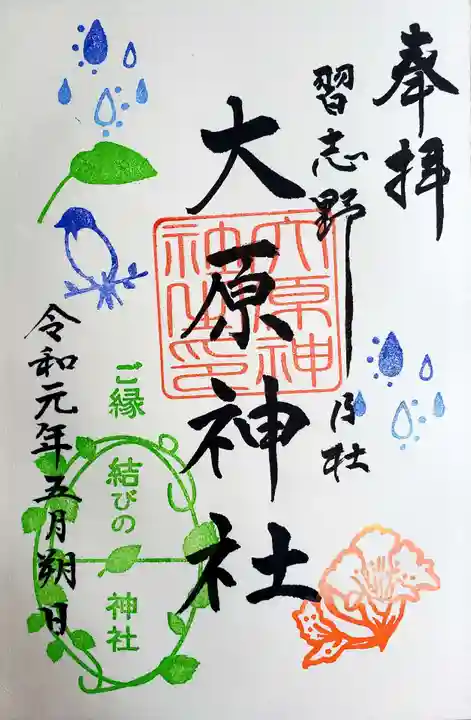 奉拝
習志野 乃社
大原神社
大原神
社之印
ご縁
結びの
神社
令和元年五月朔日